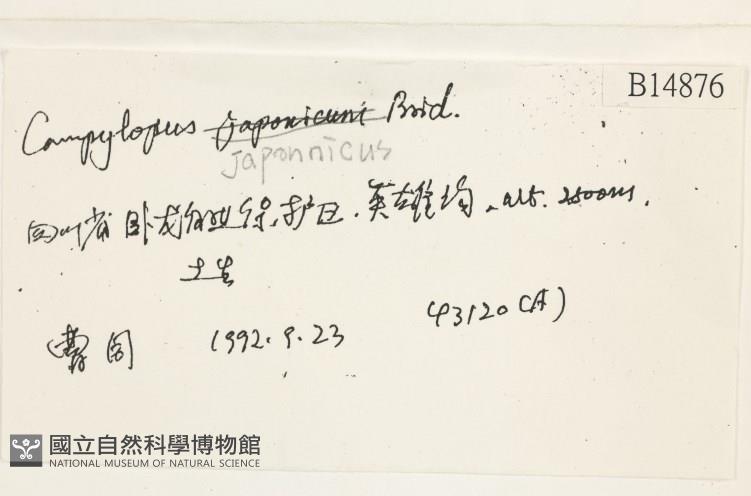 B14876
Campylopus japonicum Brid.
japonnicus
四川省卧龙自然保护区.英雄沟.alt. 2500m.
土生
曹同 1992.9.23 43120(A)
國立自然科學博物館
NATIONAL MUSEUM OF NATURAL SCIENCE